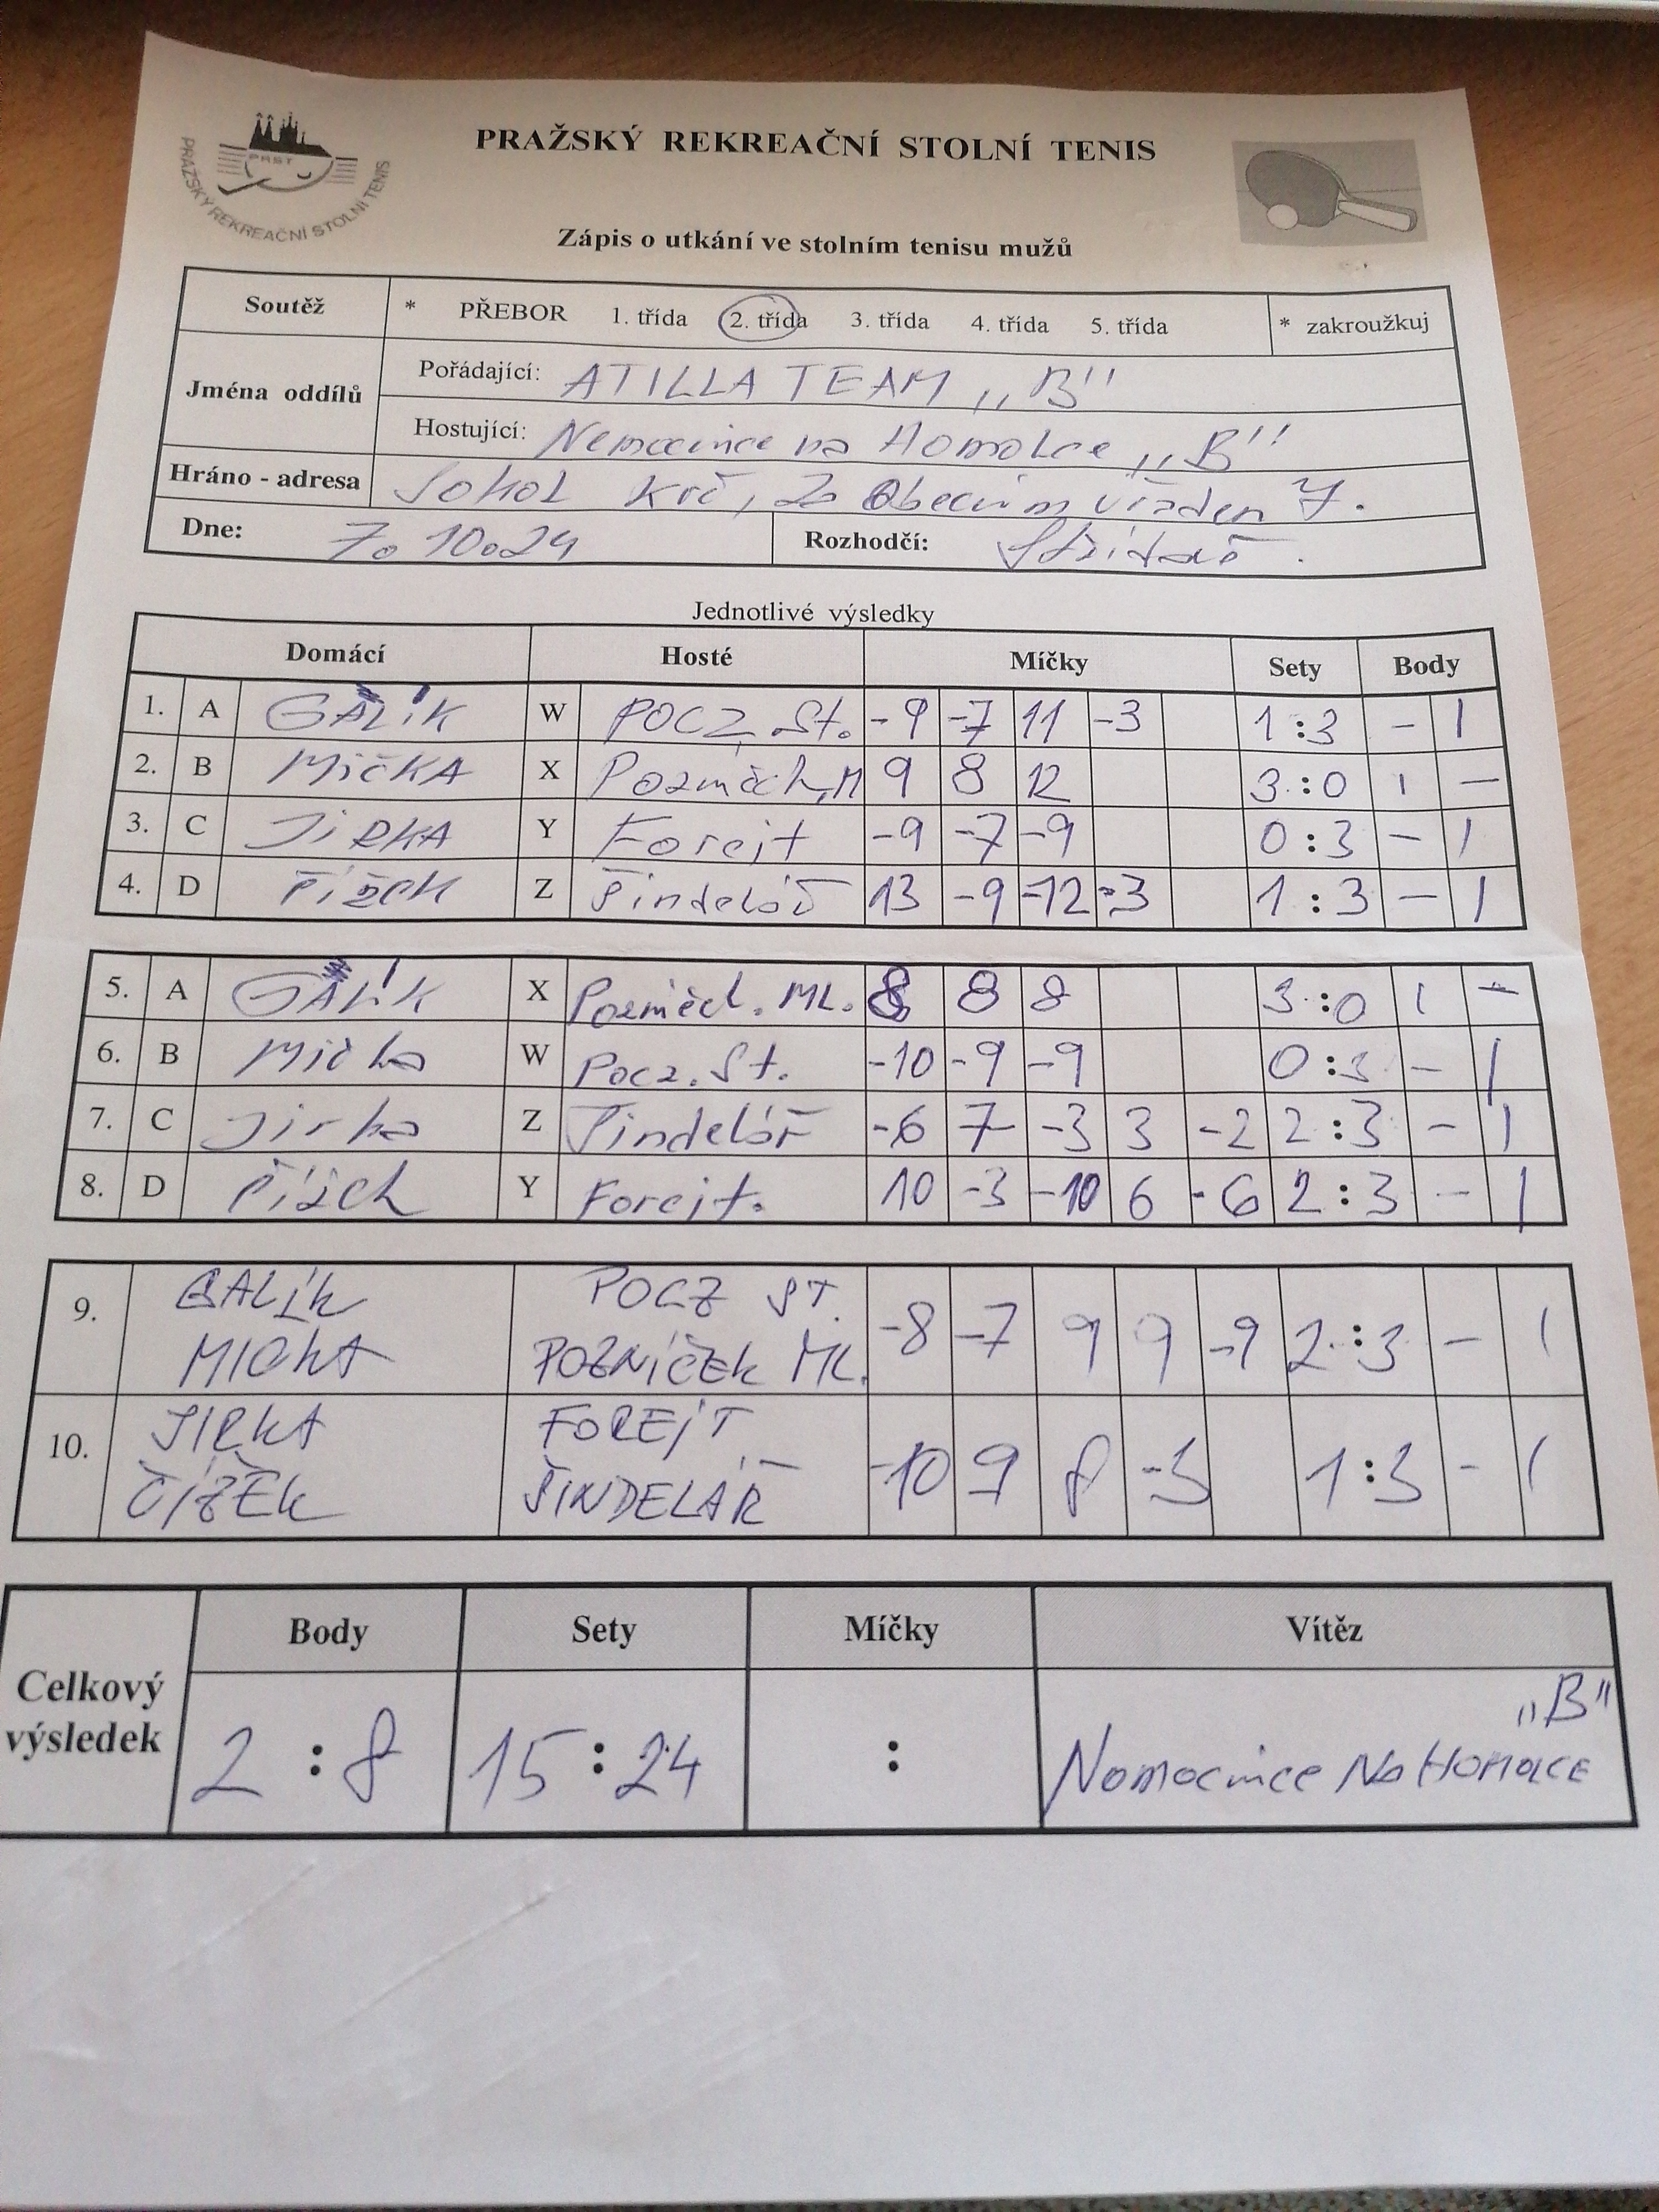 PRST
PRAŽSKÝ REKREAČNÍ STOLNÍ TENIS
PRAŽSKÝ REKREAČNÍ STOLNÍ TENIS
Zápis o utkání ve stolním tenisu mužů
Soutěž * PŘEBOR 1. třída 2. třída 3. třída 4. třída 5. třída * zakroužkuj
Jména oddílů
Pořádající: ATILLA TEAM „B"
Hostující: Nemocnice na Homolce „B"
Hráno - adresa Sokol Krč, Za Obecním 7.
Dne: 7.10.24 Rozhodčí:
Jednotlivé výsledky
Domácí Hosté Míčky Sety Body
1. A GALÍK W POCZ St. -9 -7 11 -3 1:3 - 1
2. B MIČKA X 9 8 12 3:0 1 -
3. C JIRKA Y Forejt -9 -7 -9 0:3 - 1
4. D Čížek Z Šindelář 13 -9 -12 -3 1:3 - 1
5. A GALÍK X ML. 8 8 8 3:0 1 -
6. B Mička W Pocz. St. -10 -9 -9 0:3 - 1
7. C Jirka Z Šindelář -6 7 -3 3 -2 2:3 - 1
8. D Čížek Y Forejt. 10 -3 -10 6 -6 2:3 - 1
9. GALÍK POCZ ST. -8 -7 9 9 -9 2:3 - 1
MIČKA POZNÍČEK ML.
10. JIRKA FOREJT -10 9 8 -3 1:3 - 1
ČÍŽEK ŠINDELÁŘ
Celkový výsledek
Body Sety Míčky Vítěz
2:8 15:24 : Nemocnice Na Homolce „B"